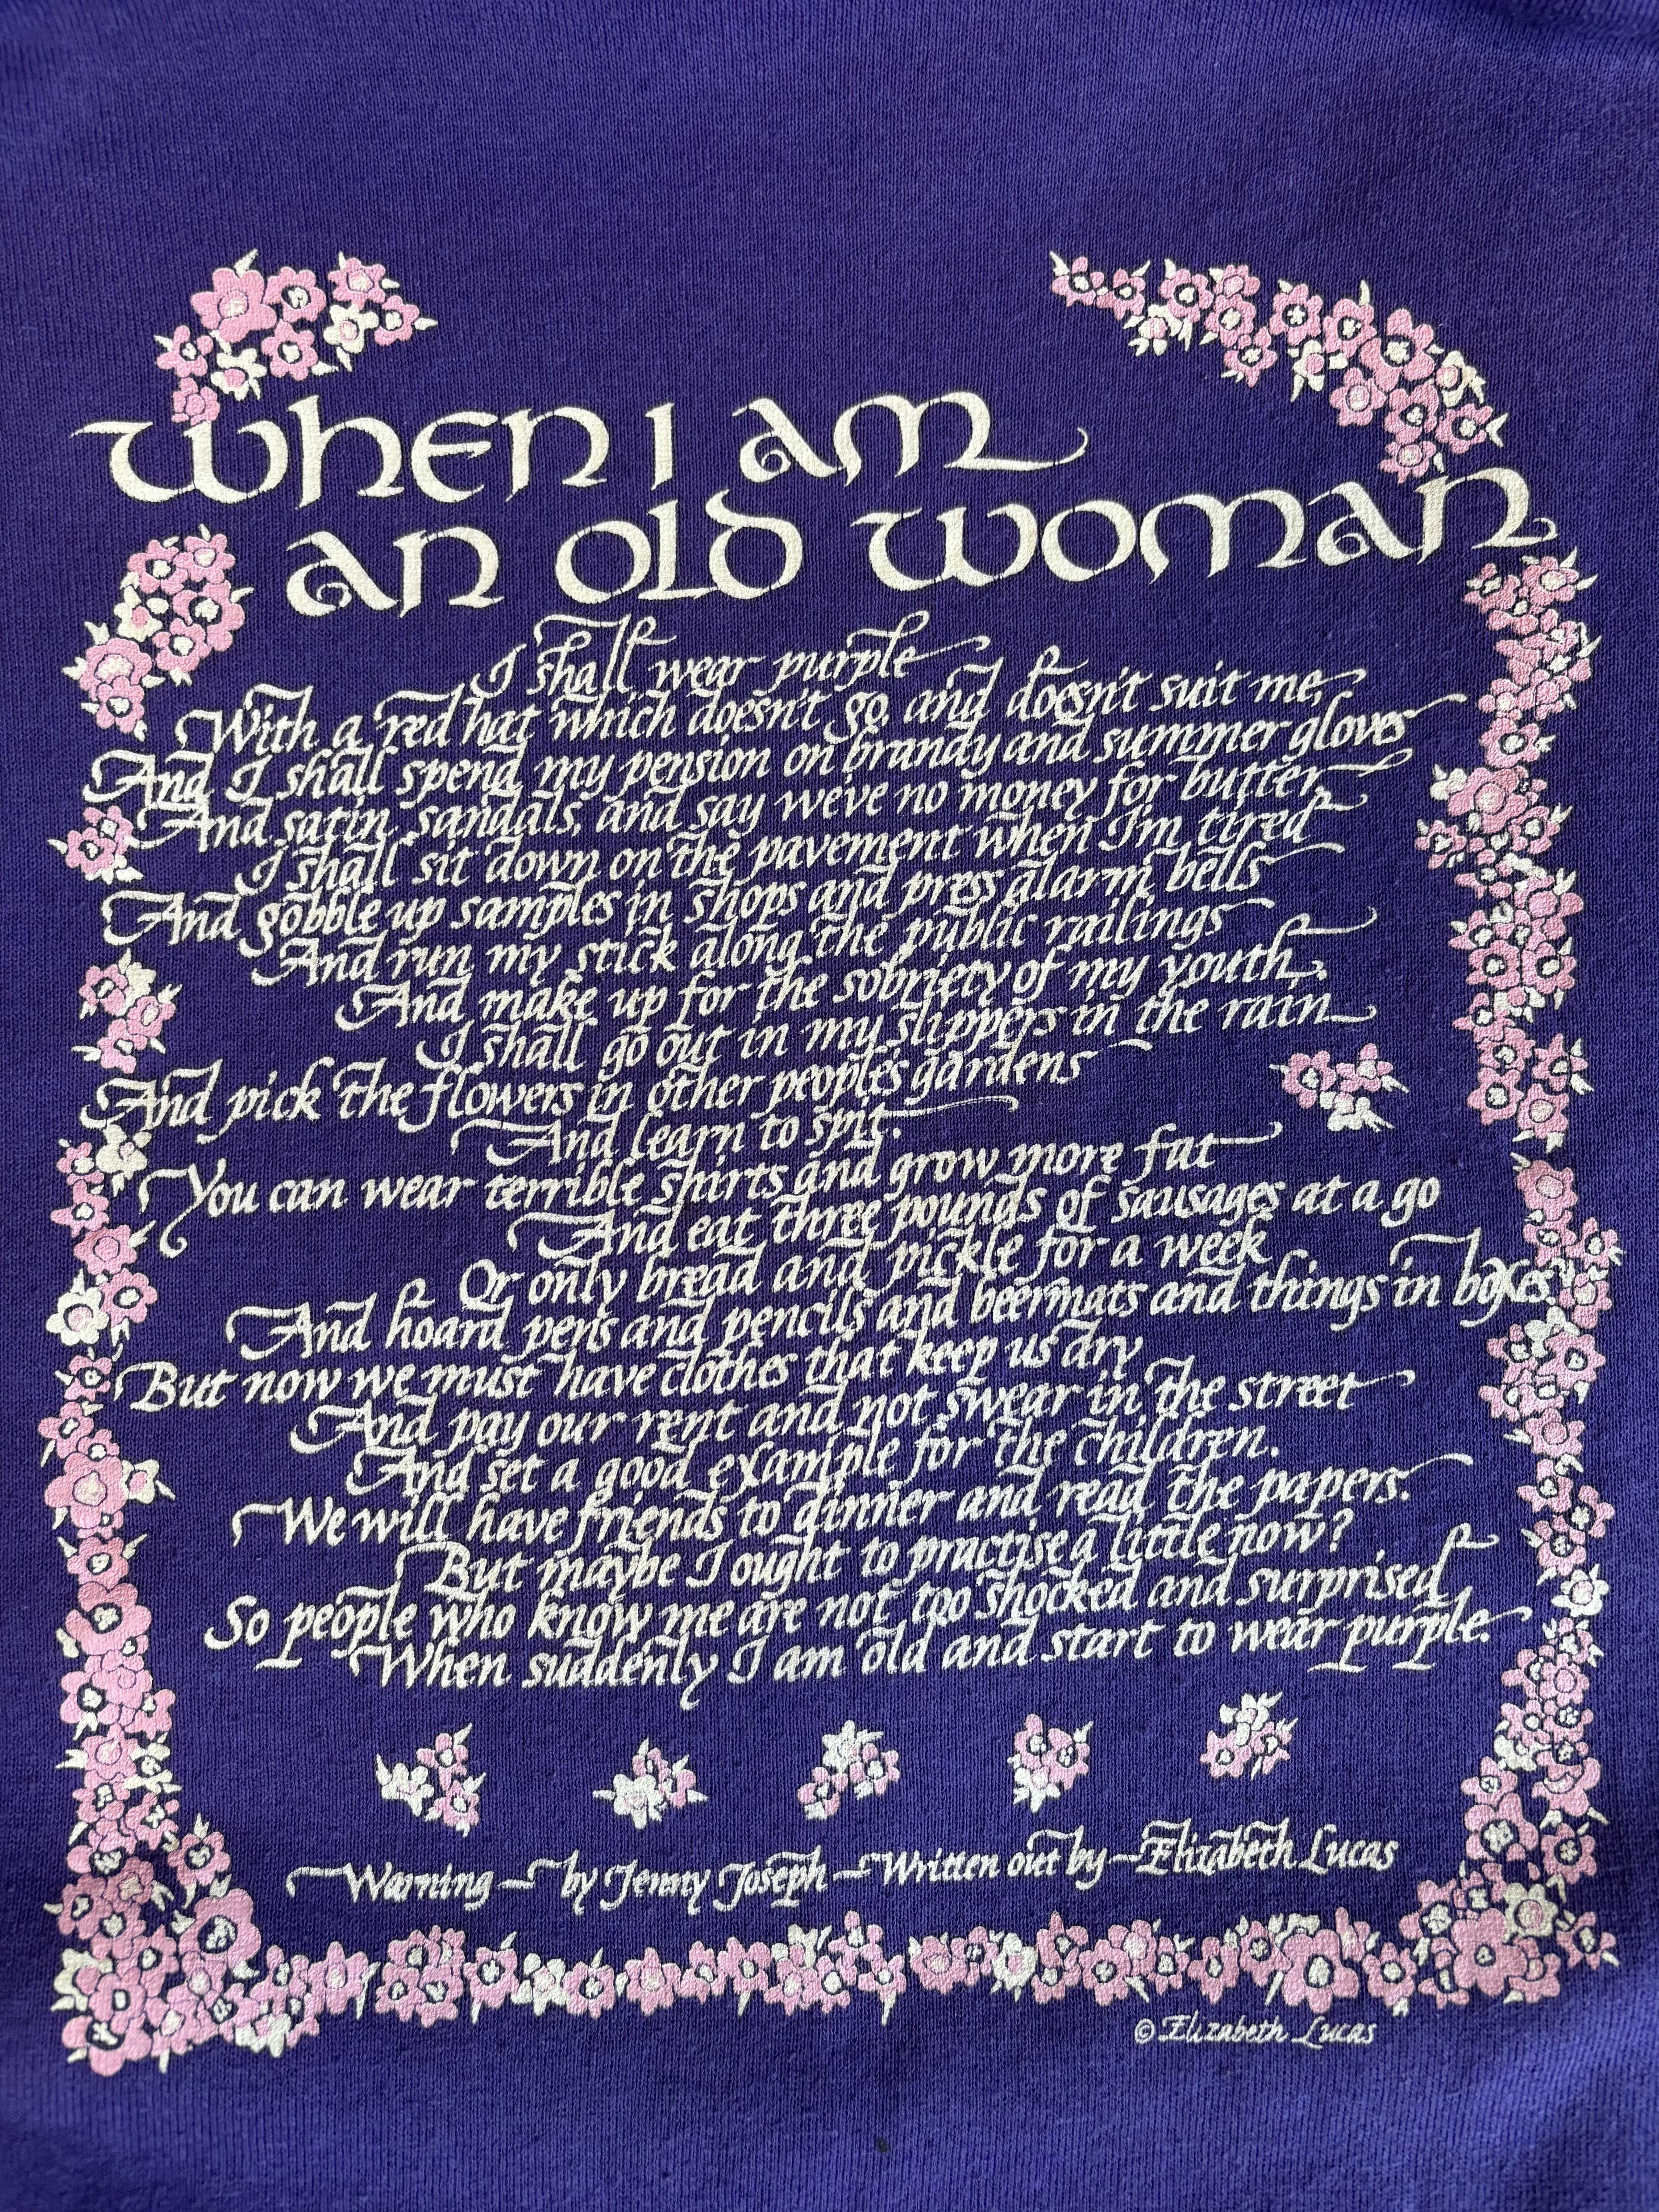 When I am
an old woman
I shall wear purple
With a red hat which doesn't go, and doesn't suit me,
And I shall spend my pension on brandy and summer gloves
And satin sandals, and say we've no money for butter.
I shall sit down on the pavement when I'm tired
And gobble up samples in shops and press alarm bells
And run my stick along the public railings
And make up for the sobriety of my youth.
I shall go out in my slippers in the rain
And pick the flowers in other people's gardens
And learn to spit.
You can wear terrible shirts and grow more fat
And eat three pounds of sausages at a go
Or only bread and pickle for a week
And hoard pens and pencils and beermats and things in boxes.
But now we must have clothes that keep us dry
And pay our rent and not swear in the street
And set a good example for the children.
We will have friends to dinner and read the papers.
But maybe I ought to practise a little now?
So people who know me are not too shocked and surprised
When suddenly I am old and start to wear purple.
Warning – by Jenny Joseph – Written out by – Elizabeth Lucas
© Elizabeth Lucas